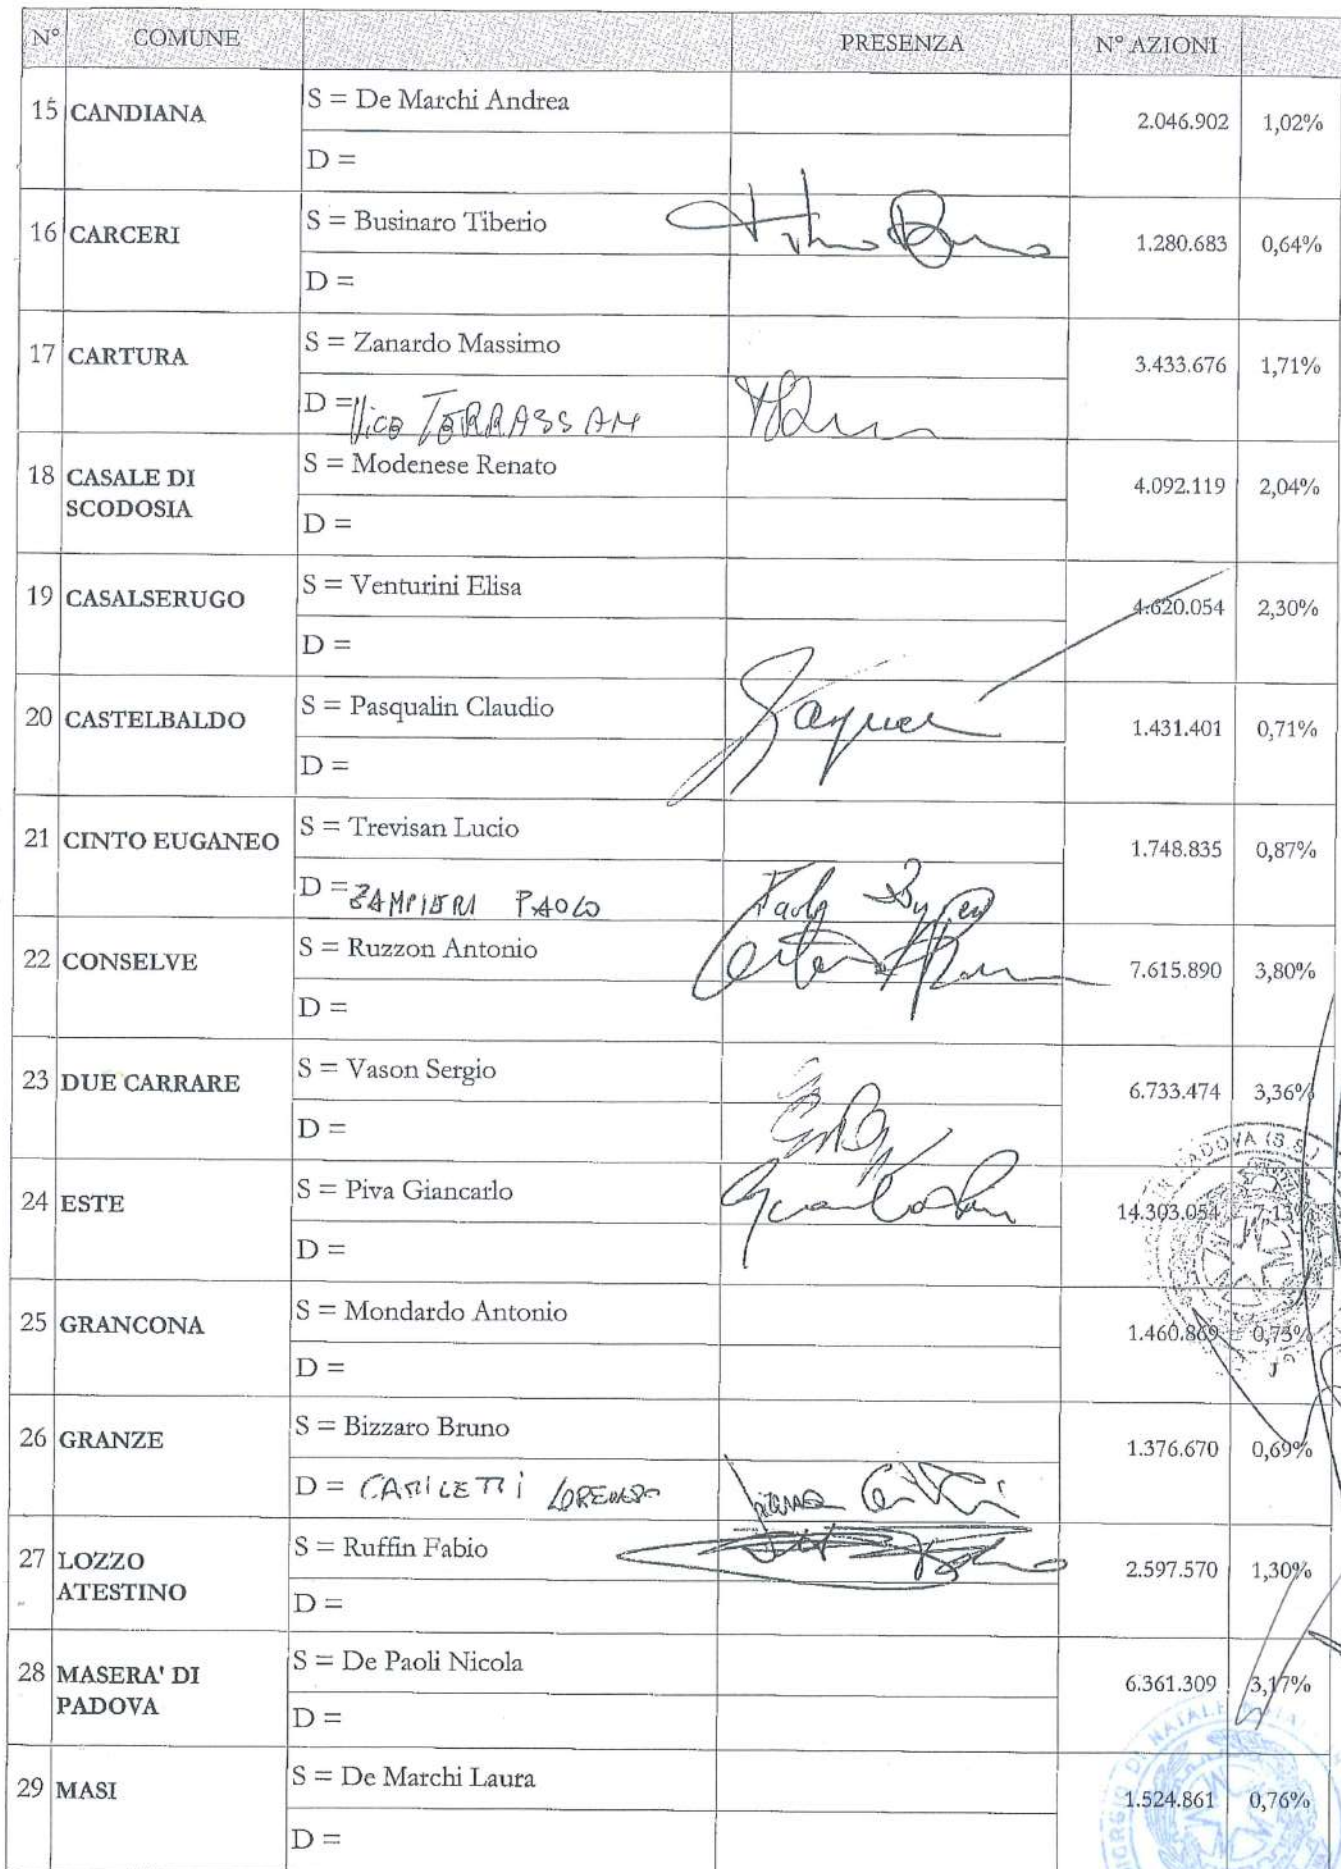 N° COMUNE PRESENZA N° AZIONI
15 CANDIANA S = De Marchi Andrea 2.046.902 1,02%
D =
16 CARCERI S = Businaro Tiberio 1.280.683 0,64%
D =
17 CARTURA S = Zanardo Massimo 3.433.676 1,71%
D =
18 CASALE DI S = Modenese Renato 4.092.119 2,04%
SCODOSIA
D =
19 CASALSERUGO S = Venturini Elisa 4.620.054 2,30%
D =
20 CASTELBALDO S = Pasqualin Claudio 1.431.401 0,71%
D =
21 CINTO EUGANEO S = Trevisan Lucio 1.748.835 0,87%
D = ZAMPIERI PAOLO
22 CONSELVE S = Ruzzon Antonio 7.615.890 3,80%
D =
23 DUE CARRARE S = Vason Sergio 6.733.474 3,36%
D =
24 ESTE S = Piva Giancarlo 14.303.054 7,13%
D =
25 GRANCONA S = Mondardo Antonio 1.460.869 0,73%
D =
26 GRANZE S = Bizzaro Bruno 1.376.670 0,69%
D = LORENZO
27 LOZZO S = Ruffin Fabio 2.597.570 1,30%
ATESTINO
D =
28 MASERA' DI S = De Paoli Nicola 6.361.309 3,17%
PADOVA
D =
29 MASI S = De Marchi Laura 1.524.861 0,76%
D =